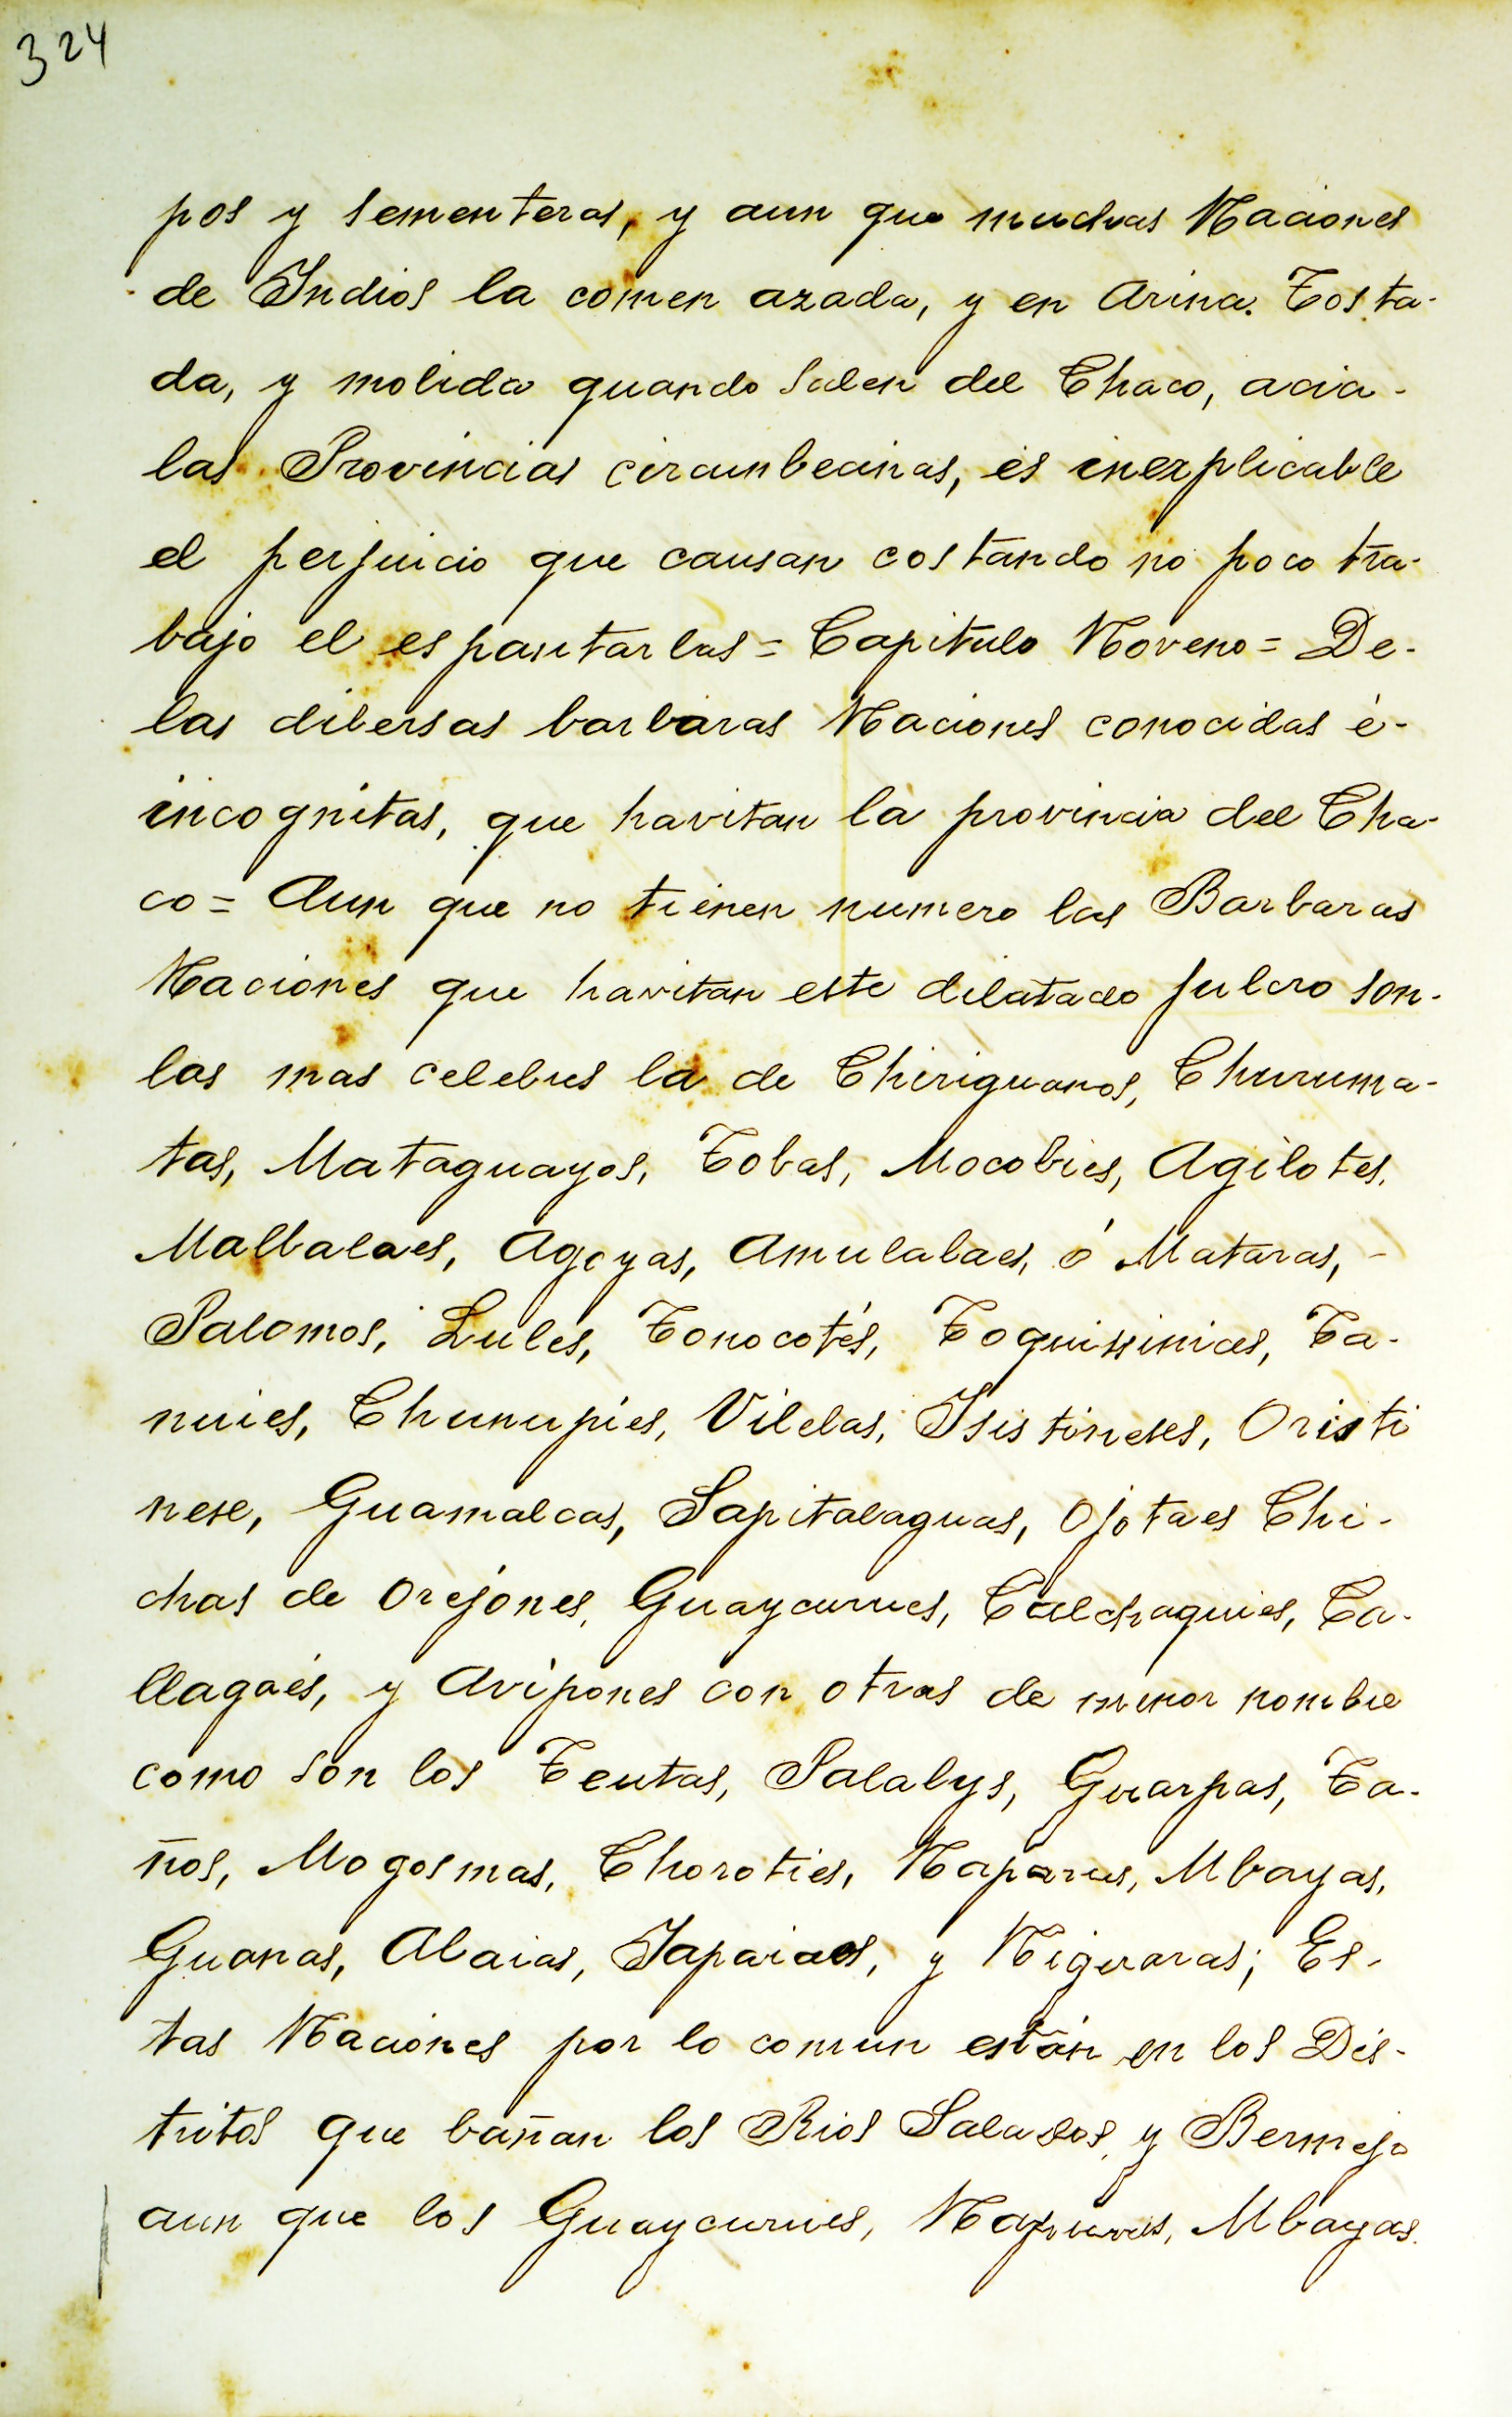 324
pos y sementeras, y aun que muchas Naciones
de Indios la comen azada, y en Arina. Tosta-
da, y molida quando salen del Chaco, acia-
las Provincias circunbecinas, es inexplicable
el perjuicio que causan costando no poco tra-
bajo el espantarlas = Capitulo Noveno = De-
las dibersas barbaras Naciones conocidas é-
incognitas, que havitan la provincia del Cha-
co = Aun que no tienen numero las Barbaras
Naciones que havitan este dilatado fulcro son-
las mas celebres la de Chiriguanos, Churuma-
tas, Mataguayos, Tobas, Mocobies, Agilotes,
Malbalaes, Agoyas, Amulalaes, ó Mataras,-
Palomos, Lules, Tonocotés, Toquistinices, Ta-
nuies, Chunupies, Vilelas, Isistineses, Oristi
nese, Guamalcas, Sapitalaguas, Ojotaes Chi-
chas de Orejones, Guaycurues, Calchaquies, Ca-
llagaés, y Avipones con otras de menor nombre
como son los Teutas, Palalys, Guarpas, Ta-
ños, Mogosmas, Choroties, Naparus, Mbayas,
Guanas, Alaias, Japaiaos, y Niguaras; Es-
tas Naciones por lo comun están en los Dis-
tritos que bañan los Rios Salados, y Bermejo
aun que los Guaycurues, Napurus, Mbayas.